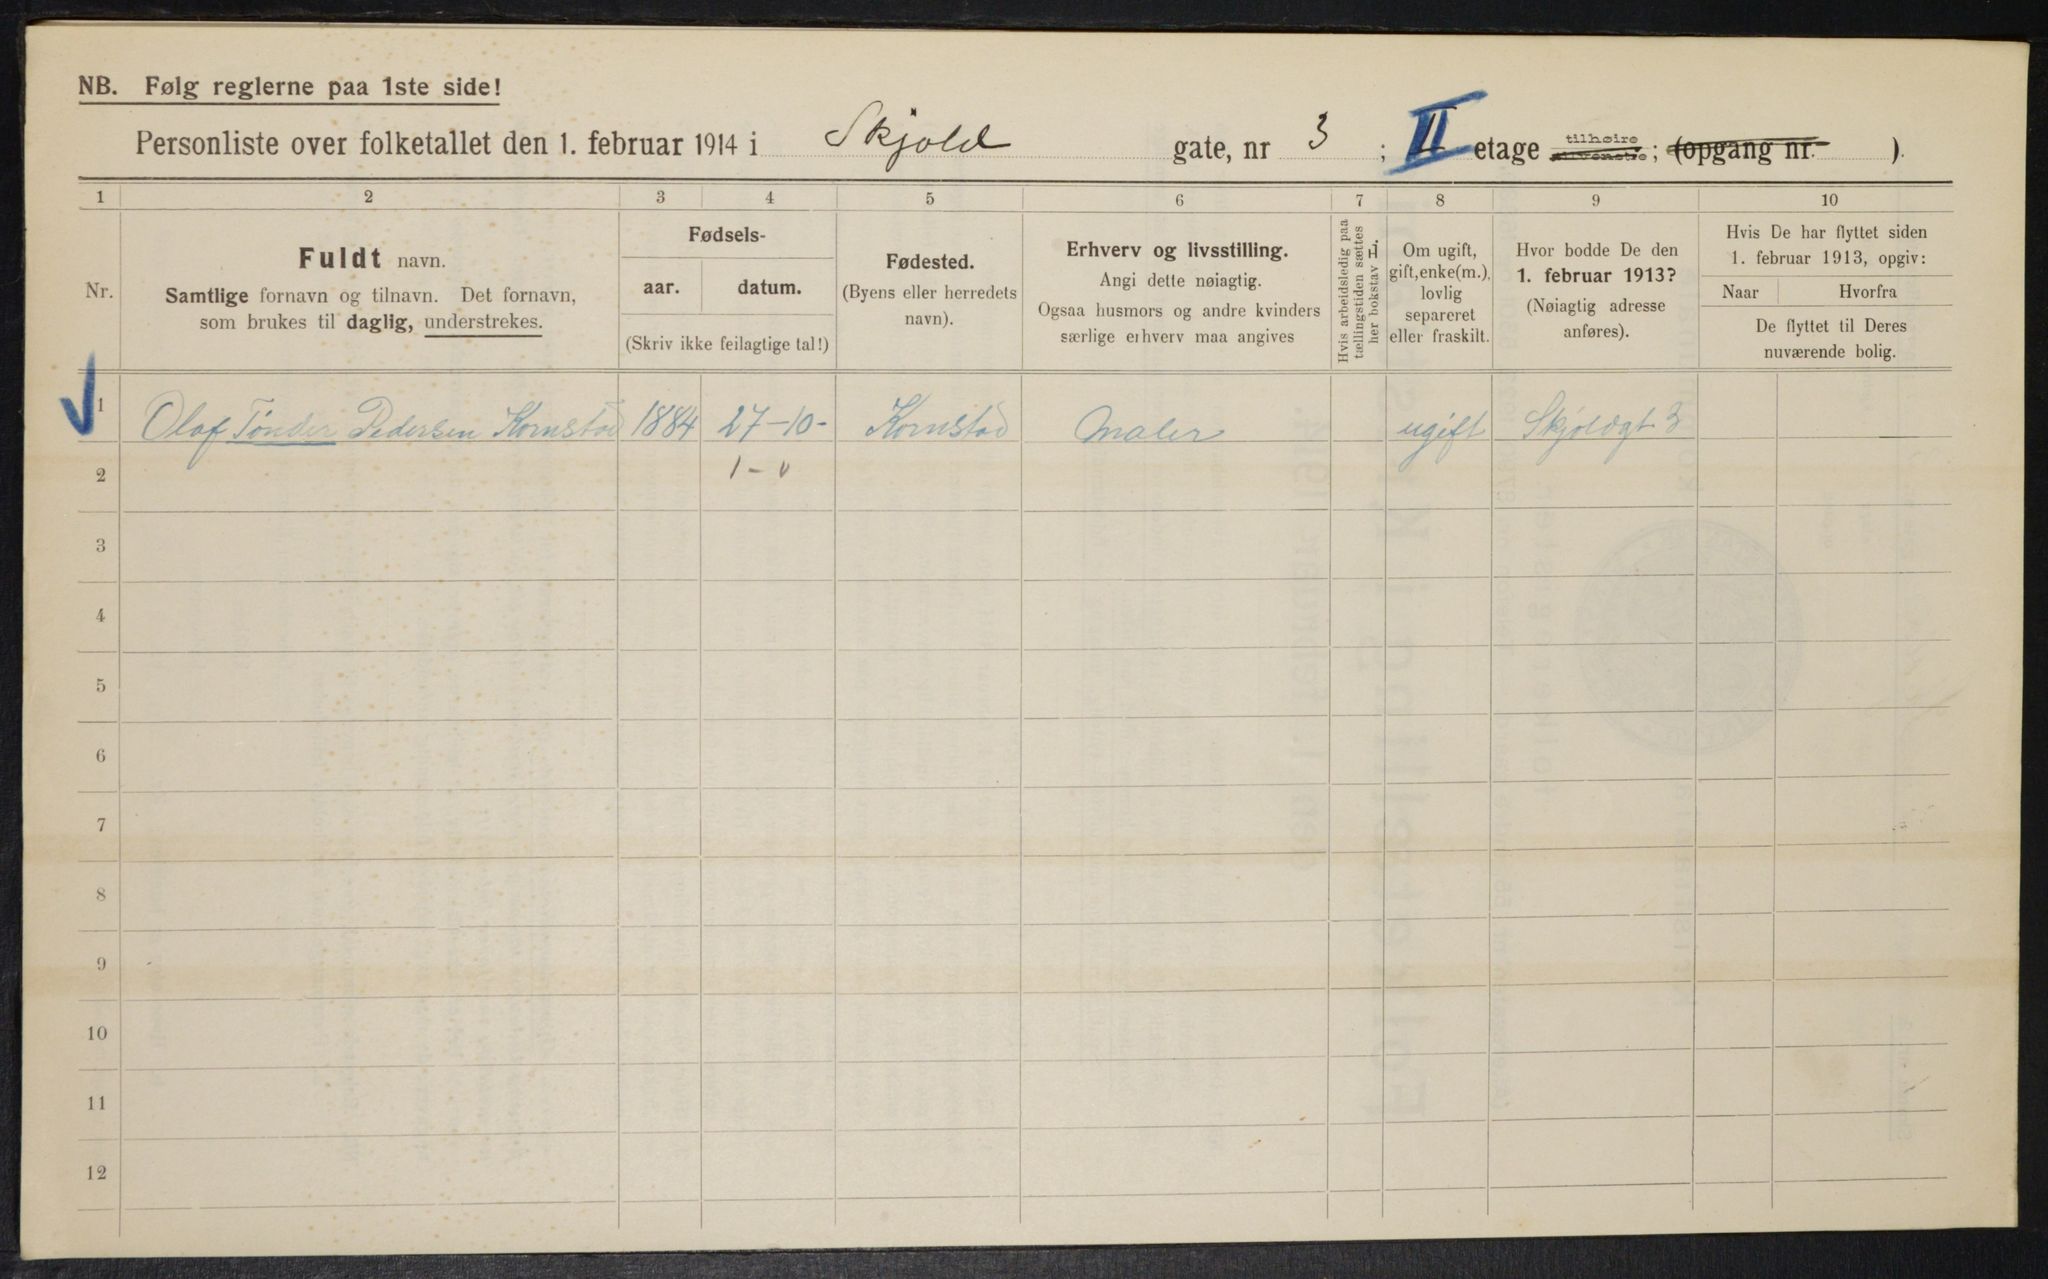 NB. Følg reglerne paa 1ste side!
Personliste over folketallet den 1. februar 1914 i Skjold gate, nr 3 ; II etage tilhøire tilvenstre ; (opgang nr. ).
1 2 3 4 5 6 7 8 9 10
Nr.
Fuldt navn.
Samtlige fornavn og tilnavn. Det fornavn,
som brukes til daglig, understrekes.
Fødsels-
aar. datum.
(Skriv ikke feilagtige tal!)
Fødested.
(Byens eller herredets
navn).
Erhverv og livsstilling.
Angi dette nøiagtig.
Ogsaa husmors og andre kvinders
særlige erhverv maa angives
Hvis arbeidsledig paa
tællingstiden sættes
her bokstav L.
Om ugift,
gift, enke(m.),
lovlig
separeret
eller fraskilt.
Hvor bodde De den
1. februar 1913?
(Nøiagtig adresse
anføres).
Hvis De har flyttet siden
1. februar 1913, opgiv:
Naar Hvorfra
De flyttet til Deres
nuværende bolig.
1 Olaf Tønder Pedersen Kornstad 1884 27-10- Kornstad Maler ugift Skjoldgt 3
2 1-0
3
4
5
6
7
8
9
10
11
12